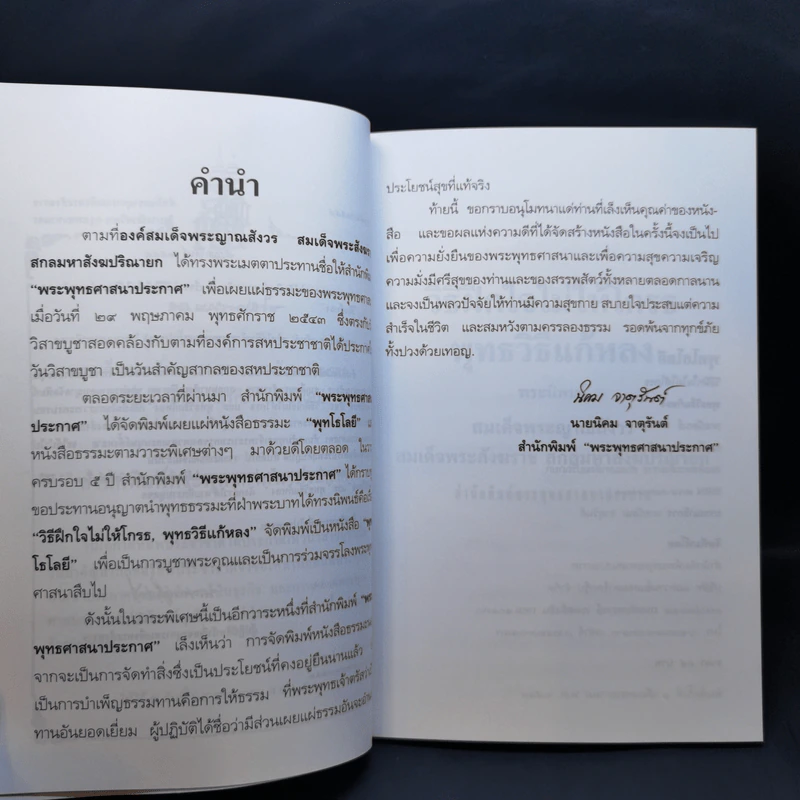 คำนำ
ตามที่องค์สมเด็จพระญาณสังวร สมเด็จพระสังฆ
สกลมหาสังฆปริณายก ได้ทรงพระเมตตาประทานชื่อให้สำนักพิม
"พระพุทธศาสนาประกาศ" เพื่อเผยแผ่ธรรมะของพระพุทธศาส
เมื่อวันที่ ๒๙ พฤษภาคม พุทธศักราช ๒๕๔๓ ซึ่งตรงกับ
วิสาขบูชาสอดคล้องกับตามที่องค์การสหประชาชาติได้ประกาศ
วันวิสาขบูชา เป็นวันสำคัญสากลของสหประชาชาติ
ตลอดระยะเวลาที่ผ่านมา สำนักพิมพ์ "พระพุทธศาส
ประกาศ" ได้จัดพิมพ์เผยแผ่หนังสือธรรมะ "พุทโธโลยี"
หนังสือธรรมะตามวาระพิเศษต่างๆ มาด้วยดีโดยตลอด
ครบรอบ ๕ ปี สำนักพิมพ์ "พระพุทธศาสนาประกาศ" ได้กราบ
ขอประทานอนุญาตนำพุทธธรรมะที่ฝ่าพระบาทได้ทรงนิพนธ์คือ
"วิธีฝึกใจไม่ให้โกรธ, พุทธวิธีแก้หลง" จัดพิมพ์เป็นหนังสือ "พุ
โธโลยี" เพื่อเป็นการบูชาพระคุณและเป็นการร่วมจรรโลงพระพุ
ศาสนาสืบไป
ดังนั้นในวาระพิเศษนี้เป็นอีกวาระหนึ่งที่สำนักพิมพ์ "พระ
พุทธศาสนาประกาศ" เล็งเห็นว่า การจัดพิมพ์หนังสือธรรมะ
จากจะเป็นการจัดทำสิ่งซึ่งเป็นประโยชน์ที่คงอยู่ยืนนานแล้ว
เป็นการบำเพ็ญธรรมทานคือการให้ธรรม ที่พระพุทธเจ้าตรัสว่า
ทานอันยอดเยี่ยม ผู้ปฏิบัติได้ชื่อว่ามีส่วนเผยแผ่ธรรมอันจะ
ประโยชน์สุขที่แท้จริง
ท้ายนี้ ขอกราบอนุโมทนาแด่ท่านที่เล็งเห็นคุณค่าของหนัง-
สือ และขอผลแห่งความดีที่ได้จัดสร้างหนังสือในครั้งนี้จงเป็นไป
เพื่อความยั่งยืนของพระพุทธศาสนาและเพื่อความสุขความเจริญ
ความมั่งมีศรีสุขของท่านและของสรรพสัตว์ทั้งหลายตลอดกาลนาน
และจงเป็นพลวปัจจัยให้ท่านมีความสุขกาย สบายใจประสบแต่ความ
สำเร็จในชีวิต และสมหวังตามครรลองธรรม รอดพ้นจากทุกข์ภัย
ทั้งปวงด้วยเทอญ.
นิคม จาตุรันต์
นายนิคม จาตุรันต์
สำนักพิมพ์ "พระพุทธศาสนาประกาศ"